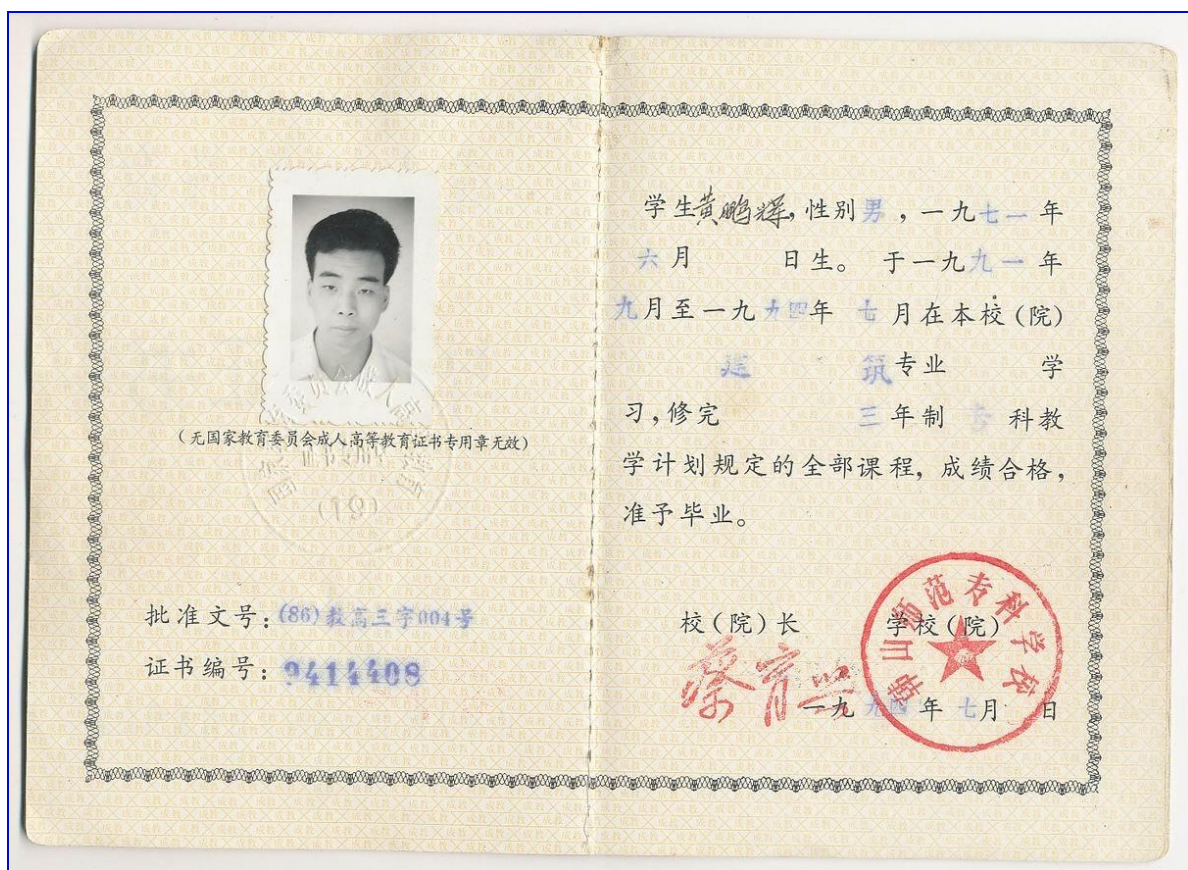 (无国家教育委员会成人高等教育证书专用章无效)
(19)
批准文号:(86)教高三字004号
证书编号:9414408
学生黄鹏辉,性别男,一九七一年
六月 日生。于一九九一年
九月至一九九四年 七月在本校(院)
建 筑专业 学
习,修完 三年制 专科教
学计划规定的全部课程,成绩合格,
准予毕业。
校(院)长 学校(院)
蔡育兴
一九九四年七月 日
韩山师范专科学校